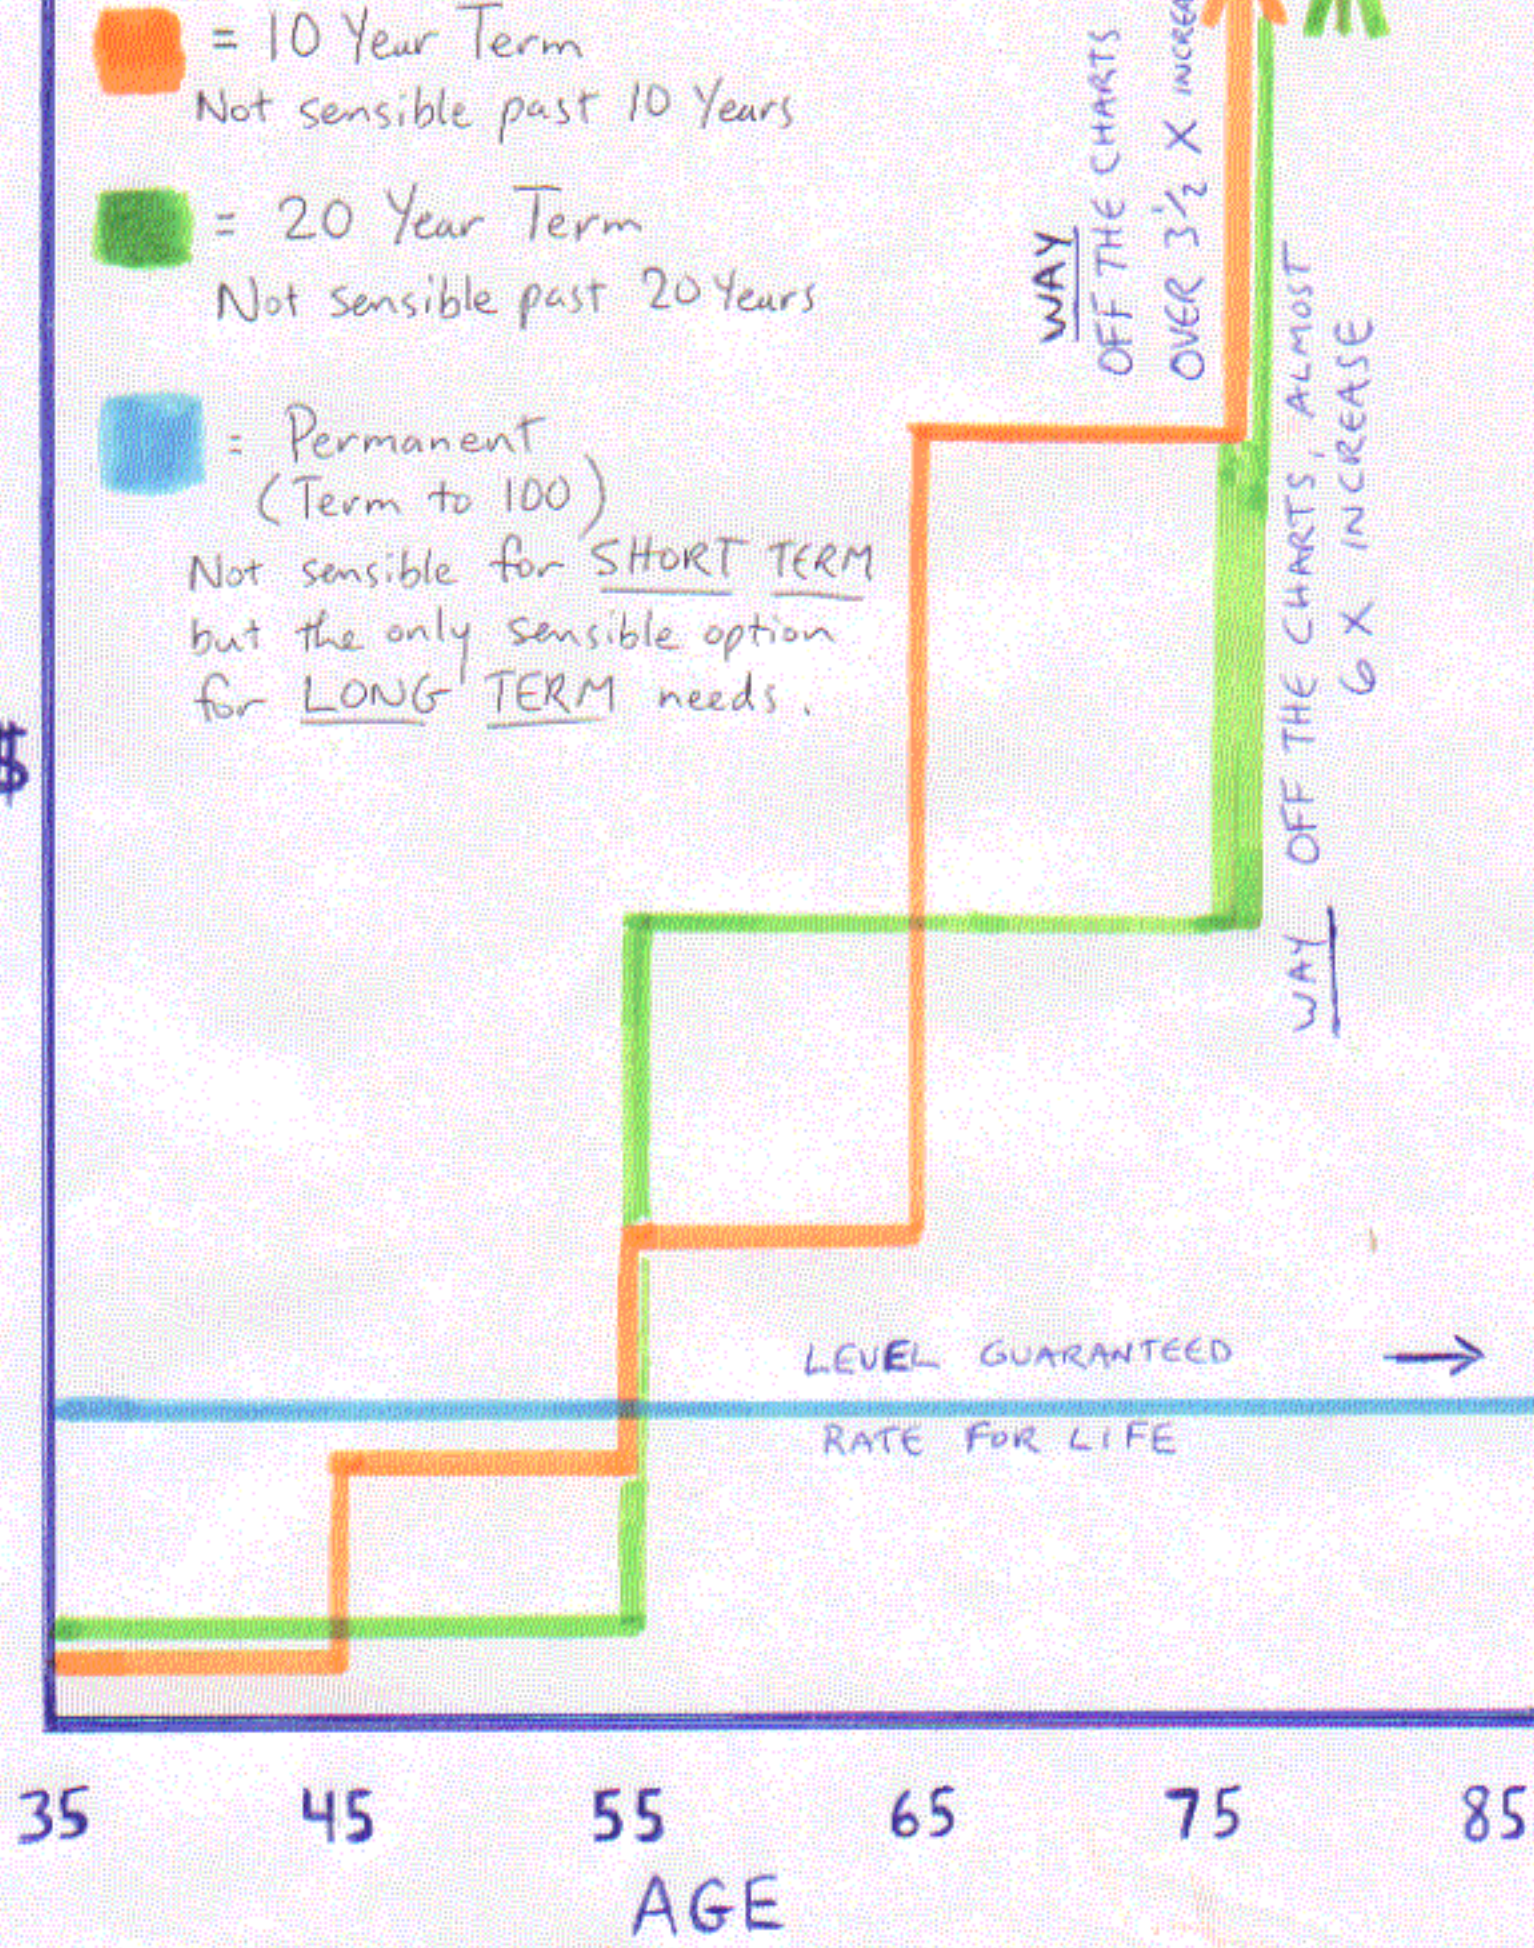 = 10 Year Term
Not sensible past 10 Years
= 20 Year Term
Not sensible past 20 Years
= Permanent
(Term to 100)
Not sensible for SHORT TERM
but the only sensible option
for LONG TERM needs.
$
WAY
OFF THE CHARTS
OVER 3 1/2 X
WAY OFF THE CHARTS, ALMOST
6 X INCREASE
LEVEL GUARANTEED →
RATE FOR LIFE
35 45 55 65 75 85
AGE